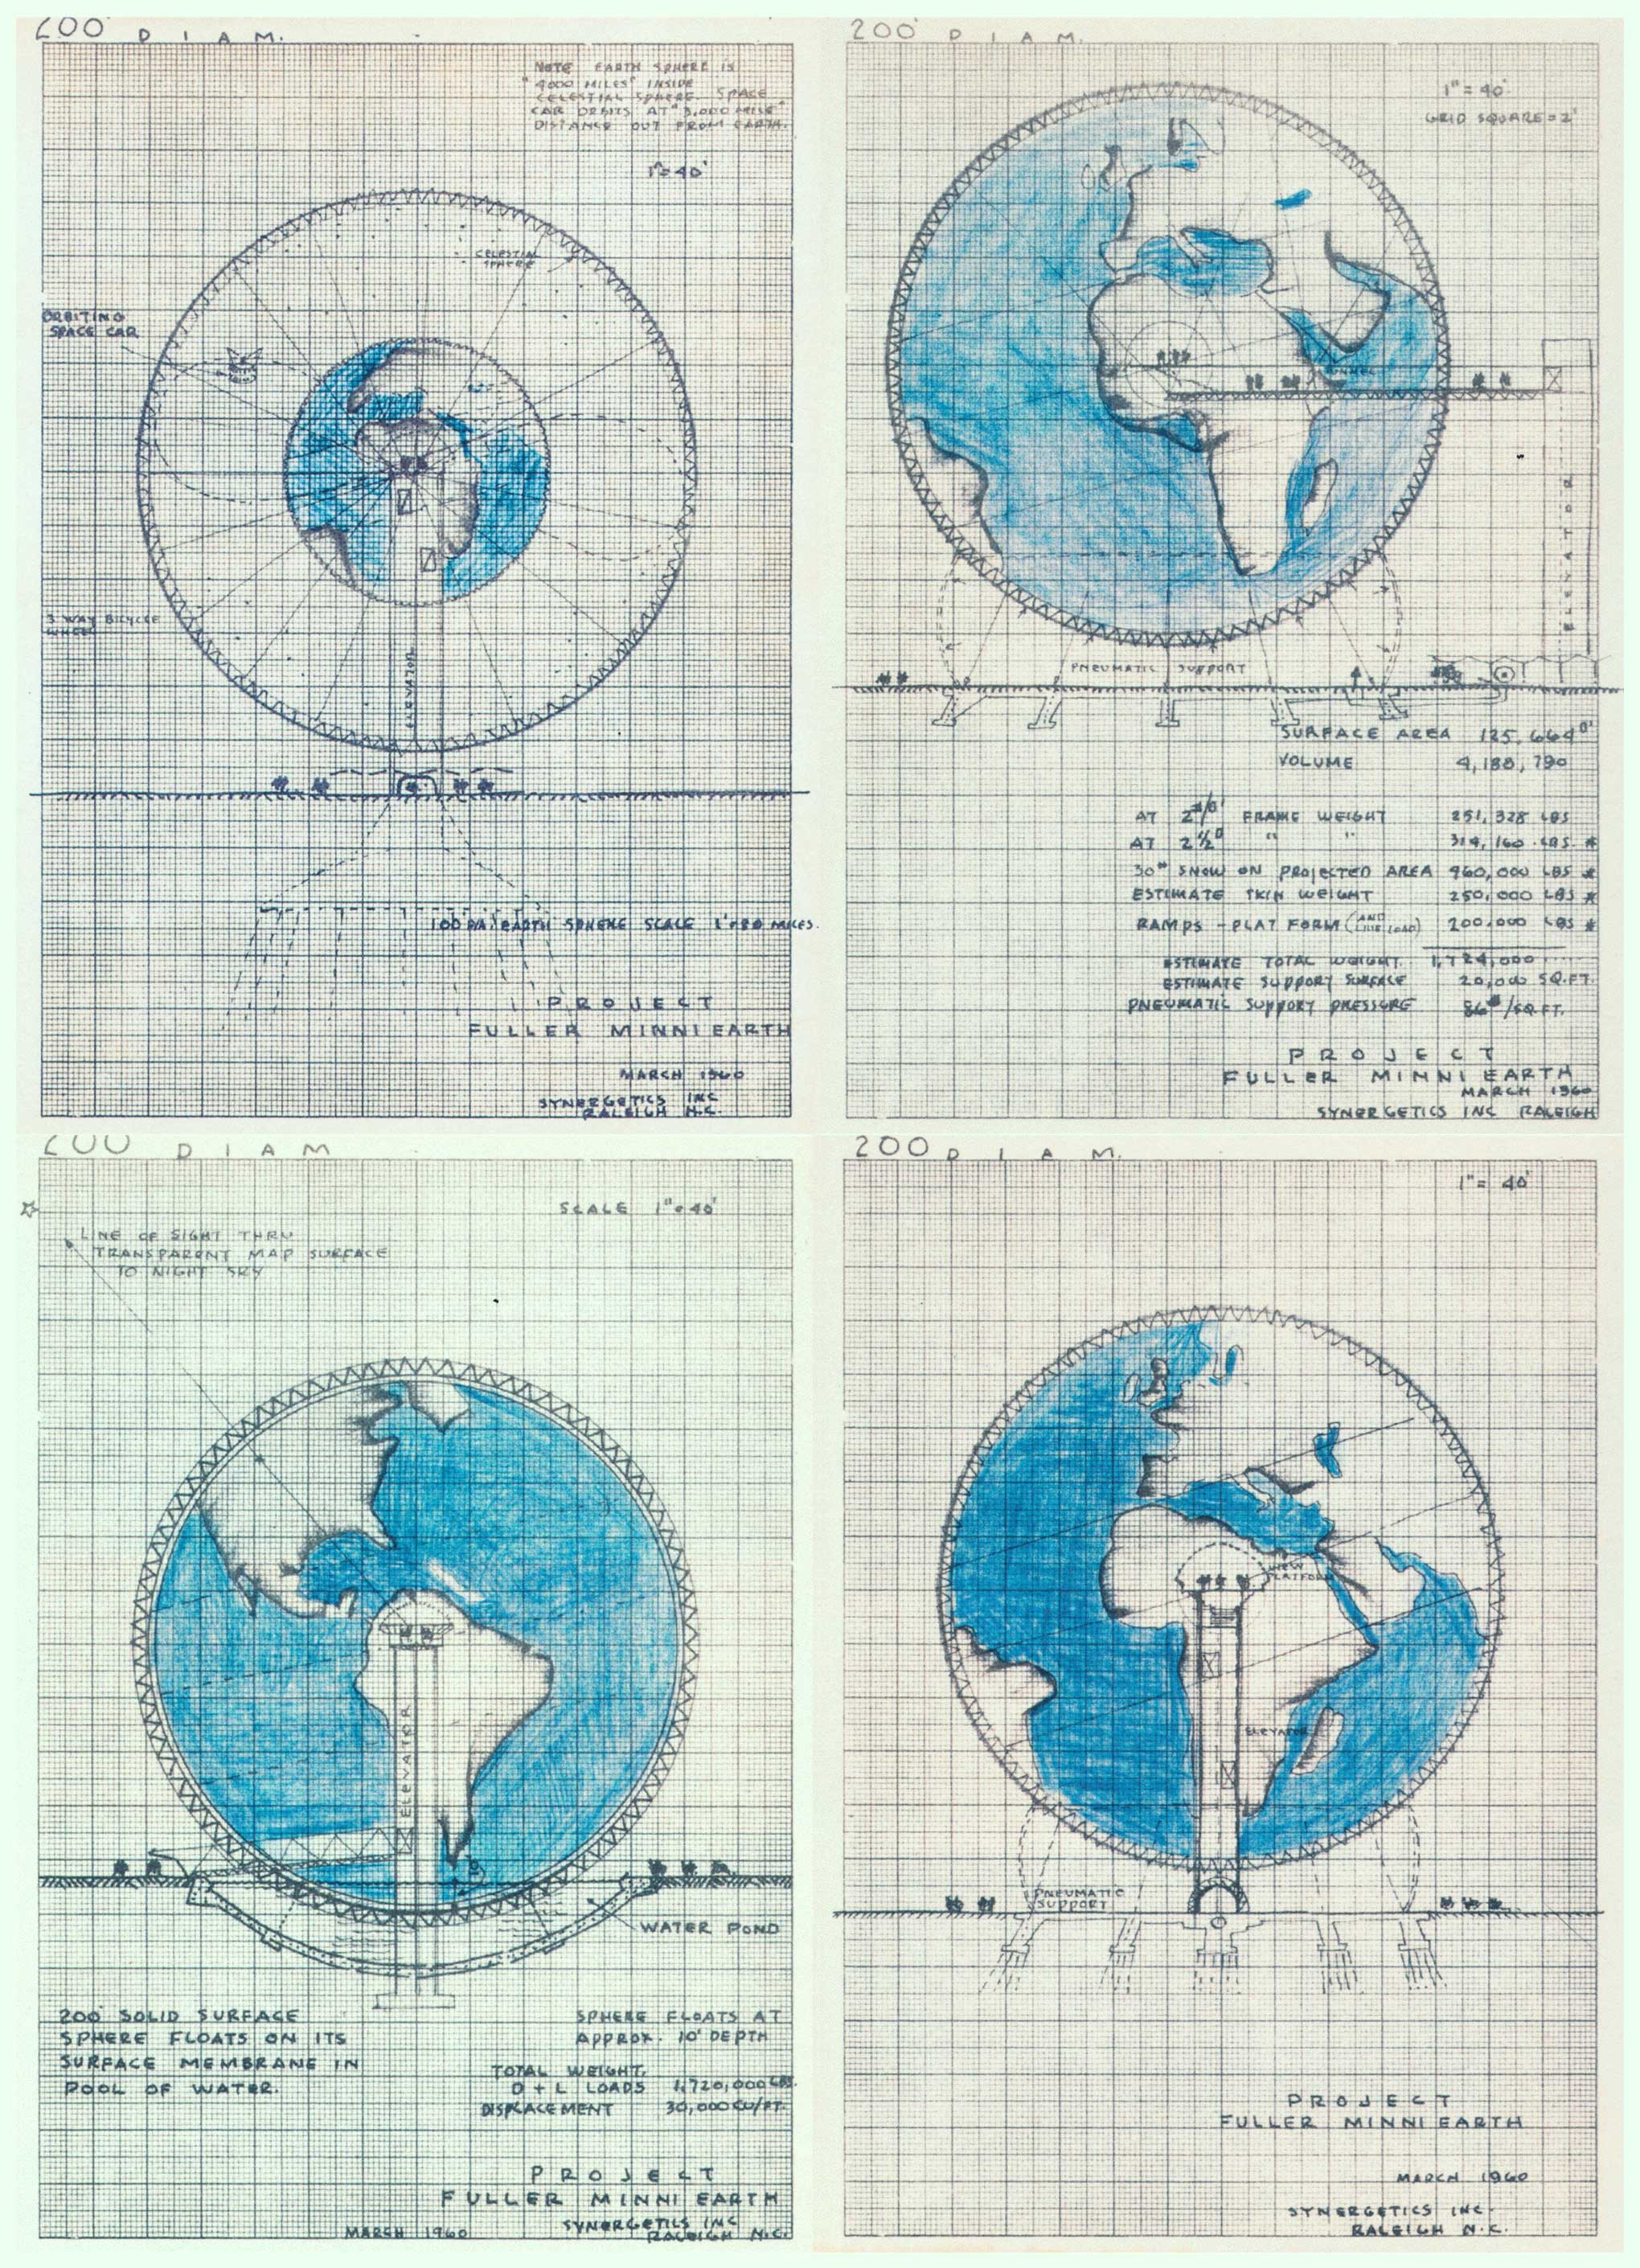 200' DIAM.
NOTE EARTH SPHERE IS
"4000 MILES" INSIDE
CELESTIAL SPHERE. SPACE
CAR ORBITS AT "3,000 MILE"
DISTANCE OUT FROM EARTH.
1"=40'
CELESTIAL
SPHERE
ORBITING
SPACE CAR
3 WAY BICYCLE
WHEEL
ELEVATOR
100' DIA. EARTH SPHERE SCALE 1'=80 MILES.
PROJECT
FULLER MINNI EARTH
MARCH 1960
SYNERGETICS INC
RALEIGH N.C.
200' DIAM.
1"=40'
GRID SQUARE=2'
TUNNEL
ELEVATOR
PNEUMATIC SUPPORT
SURFACE AREA 125,664□'
VOLUME 4,188,790
AT 2#/□' FRAME WEIGHT 251,328 LBS
AT 2 1/2 #/□' " " 314,160 LBS. *
30# SNOW ON PROJECTED AREA 960,000 LBS *
ESTIMATE SKIN WEIGHT 250,000 LBS *
RAMPS - PLAT FORM (AND LIVE LOAD) 200,000 LBS *
ESTIMATE TOTAL WEIGHT. 1,724,000
ESTIMATE SUPPORT SURFACE 20,000 SQ.FT.
PNEUMATIC SUPPORT PRESSURE 86#/SQ.FT.
PROJECT
FULLER MINNI EARTH
MARCH 1960
SYNERGETICS INC RALEIGH
200 DIAM
SCALE 1"=40'
LINE OF SIGHT THRU
TRANSPARENT MAP SURFACE
TO NIGHT SKY
ELEVATOR
10'
WATER POND
200' SOLID SURFACE
SPHERE FLOATS ON ITS
SURFACE MEMBRANE IN
POOL OF WATER.
SPHERE FLOATS AT
APPROX. 10' DEPTH
TOTAL WEIGHT.
D + L LOADS 1,720,000 LBS.
DISPLACEMENT 30,000 CU/FT.
PROJECT
FULLER MINNI EARTH
SYNERGETICS INC
MARCH 1960 RALEIGH N.C.
200 DIAM.
1"= 40'
VIEW
PLATFORM
ELEVATOR
PNEUMATIC
SUPPORT
PROJECT
FULLER MINNI EARTH
MARCH 1960
SYNERGETICS INC.
RALEIGH N.C.